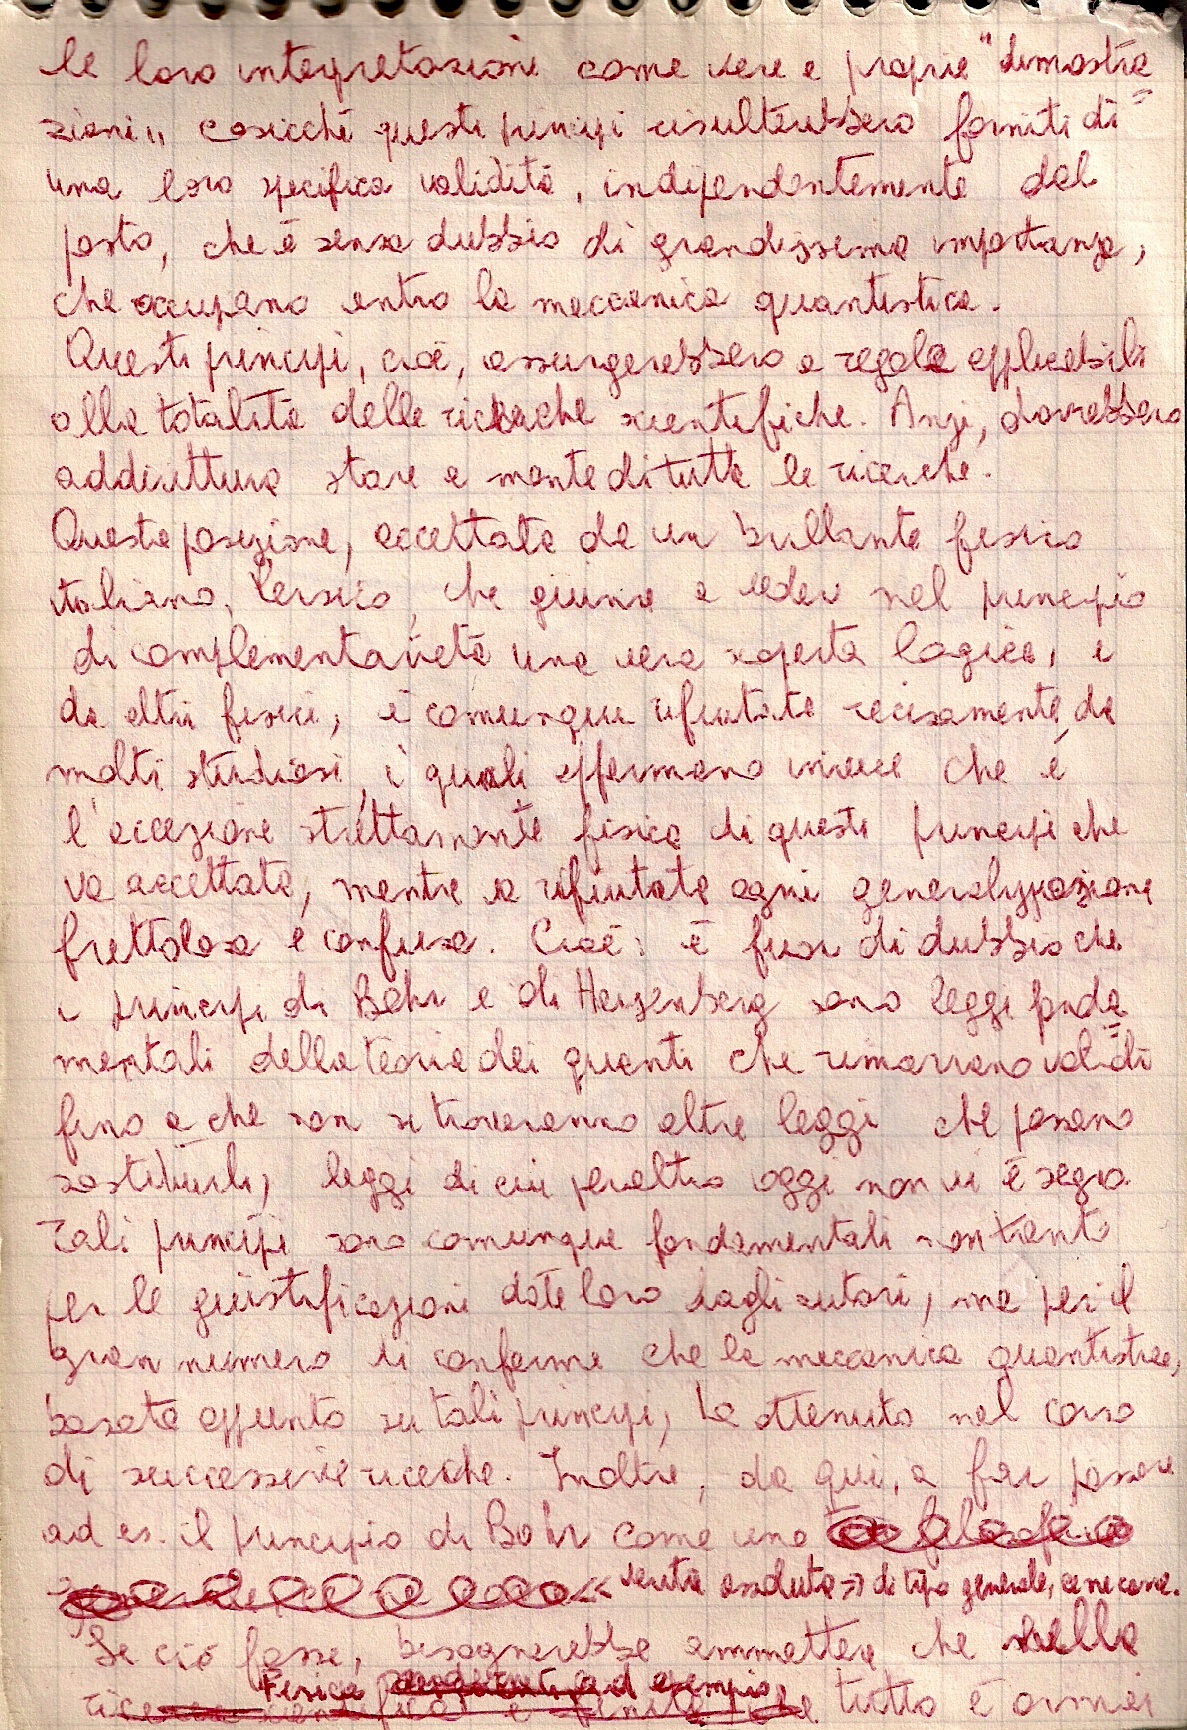 le loro interpretazioni come vere e proprie "dimostra=
zioni,, cosicché questi principi risulterebbero forniti di
una loro specifica validità, indipendentemente dal
posto, che è senza dubbio di grandissima importanza,
che occupano entro la meccanica quantistica.
Questi principi, cioè, assurgerebbero a regole applicabili
alla totalità delle ricerche scientifiche. Anzi, dovrebbero
addirittura stare a monte di tutte le ricerche.
Questa posizione, accettata da un brillante fisico
italiano, Persico, che giunse a veder nel principio
di complementarietà una vera scoperta logica, e
da altri fisici, è comunque rifiutata recisamente da
molti studiosi, i quali affermano invece che è
l'accezione strettamente fisica di questi principi che
va accettata, mentre va rifiutata ogni generalizzazione
frettolosa e confusa. Cioè: è fuor di dubbio che
i principi di Bohr e di Heisenberg sono leggi fonda=
mentali della teoria dei quanti che rimarranno validi
fino a che non si troveranno altre leggi che possano
sostituirli, leggi di cui peraltro oggi non vi è segno.
Tali principi sono comunque fondamentali non tanto
per le giustificazioni date loro dagli autori, ma per il
gran numero di conferme che la meccanica quantistica,
basata appunto su tali principi, ha ottenuto nel corso
di successive ricerche. Inoltre, da qui, a far passare
ad es. il principio di Bohr come una
<< verità assoluta >> di tipo generale, ce ne corre.
Se ciò fosse, bisognerebbe ammettere che nella
Fisica ad esempio
tutto è ormai